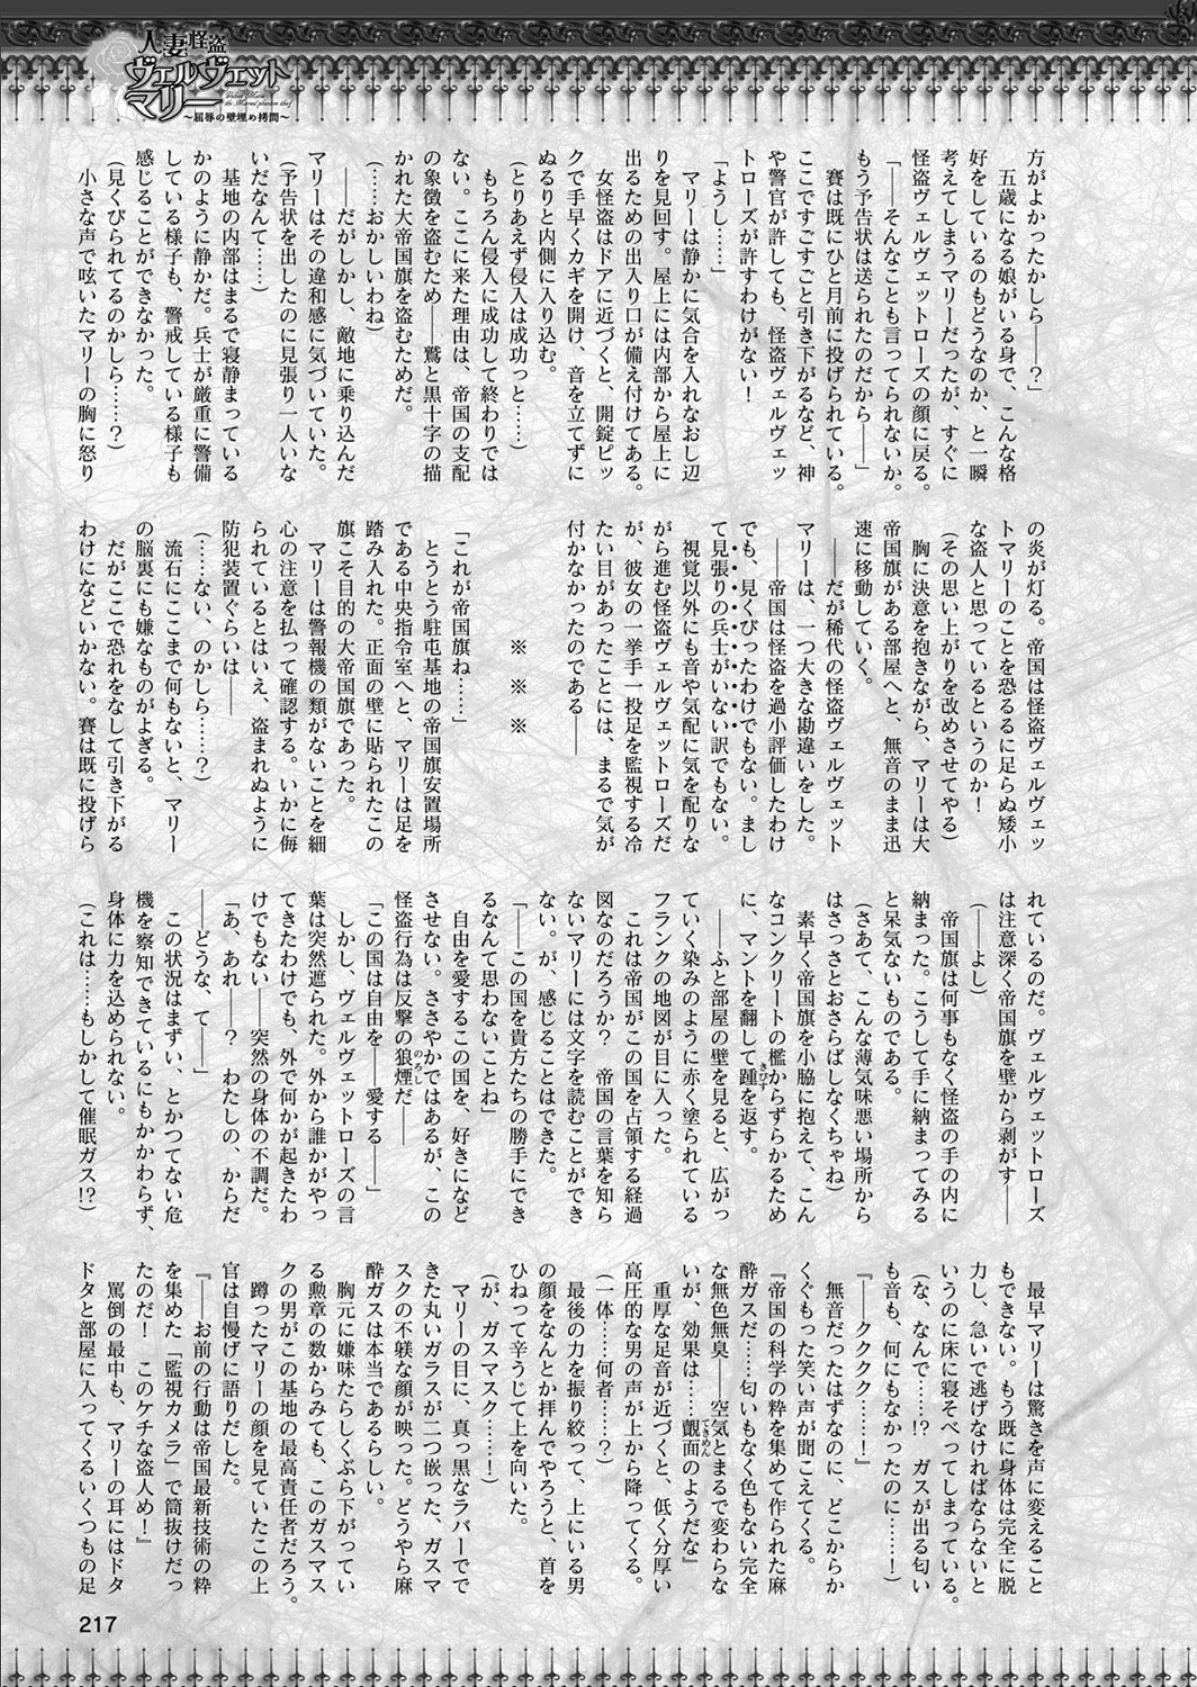 人妻怪盗
ヴェルヴェット
マリー
～屈辱の壁埋め拷問～
方がよかったかしら――？」
　五歳になる娘がいる身で、こんな格
好をしているのもどうなのか、と一瞬
考えてしまうマリーだったが、すぐに
怪盗ヴェルヴェットローズの顔に戻る。
「――そんなことも言ってられないか。
もう予告状は送られたのだから――」
　賽は既にひと月前に投げられている。
ここですごすごと引き下がるなど、神
や警官が許しても、怪盗ヴェルヴェッ
トローズが許すわけがない！
「ようし……」
　マリーは静かに気合を入れなおし辺
りを見回す。屋上には内部から屋上に
出るための出入り口が備え付けてある。
　女怪盗はドアに近づくと、開錠ピッ
クで手早くカギを開け、音を立てずに
ぬるりと内側に入り込む。
（とりあえず侵入は成功っと……）
　もちろん侵入に成功して終わりでは
ない。ここに来た理由は、帝国の支配
の象徴を盗むため――鷲と黒十字の描
かれた大帝国旗を盗むためだ。
（……おかしいわね）
　――だがしかし、敵地に乗り込んだ
マリーはその違和感に気づいていた。
（予告状を出したのに見張り一人いな
いだなんて……）
　基地の内部はまるで寝静まっている
かのように静かだ。兵士が厳重に警備
している様子も、警戒している様子も
感じることができなかった。
（見くびられてるのかしら……？）
　小さな声で呟いたマリーの胸に怒り
の炎が灯る。帝国は怪盗ヴェルヴェッ
トマリーのことを恐るるに足らぬ矮小
な盗人と思っているというのか！
（その思い上がりを改めさせてやる）
　胸に決意を抱きながら、マリーは大
帝国旗がある部屋へと、無音のまま迅
速に移動していく。
　――だが稀代の怪盗ヴェルヴェット
マリーは、一つ大きな勘違いをした。
　――帝国は怪盗を過小評価したわけ
でも、見くびったわけでもない。まし
て見張りの兵士がいない訳でもない。
　視覚以外にも音や気配に気を配りな
がら進む怪盗ヴェルヴェットローズだ
が、彼女の一挙手一投足を監視する冷
たい目があったことには、まるで気が
付かなかったのである――
※　※　※
「これが帝国旗ね……」
　とうとう駐屯基地の帝国旗安置場所
である中央指令室へと、マリーは足を
踏み入れた。正面の壁に貼られたこの
旗こそ目的の大帝国旗であった。
　マリーは警報機の類がないことを細
心の注意を払って確認する。いかに侮
られているとはいえ、盗まれぬように
防犯装置ぐらいは――
（……ない、のかしら……？）
　流石にここまで何もないと、マリー
の脳裏にも嫌なものがよぎる。
　だがここで恐れをなして引き下がる
わけになどいかない。賽は既に投げら
れているのだ。ヴェルヴェットローズ
は注意深く帝国旗を壁から剥がす――
（――よし）
　帝国旗は何事もなく怪盗の手の内に
納まった。こうして手に納まってみる
と呆気ないものである。
（さあて、こんな薄気味悪い場所から
はさっさとおさらばしなくちゃね）
　素早く帝国旗を小脇に抱えて、こん
なコンクリートの檻からずらかるため
に、マントを翻して踵を返す。
きびす
　――ふと部屋の壁を見ると、広がっ
ていく染みのように赤く塗られている
フランクの地図が目に入った。
　これは帝国がこの国を占領する経過
図なのだろうか？　帝国の言葉を知ら
ないマリーには文字を読むことができ
ない。が、感じることはできた。
「――この国を貴方たちの勝手にでき
るなんて思わないことね」
　自由を愛するこの国を、好きになど
させない。ささやかではあるが、この
怪盗行為は反撃の狼煙だ――
のろし
「この国は自由を――愛する――」
　しかし、ヴェルヴェットローズの言
葉は突然遮られた。外から誰かがやっ
てきたわけでも、外で何かが起きたわ
けでもない――突然の身体の不調だ。
「あ、あれ――？　わたしの、からだ
――どうな、て――」
　この状況はまずい、とかつてない危
機を察知できているにもかかわらず、
身体に力を込められない。
（これは……もしかして催眠ガス!?）
　最早マリーは驚きを声に変えること
もできない。もう既に身体は完全に脱
力し、急いで逃げなければならないと
いうのに床に寝そべってしまっている。
（な、なんで……!?　ガスが出る匂い
も音も、何にもなかったのに……！）
『――クククク……！』
　無音だったはずなのに、どこからか
くぐもった笑い声が聞こえてくる。
『帝国の科学の粋を集めて作られた麻
酔ガスだ……匂いもなく色もない完全
な無色無臭――空気とまるで変わらな
いが、効果は……覿面のようだな』
てきめん
　重厚な足音が近づくと、低く分厚い
高圧的な男の声が上から降ってくる。
（一体……何者……？）
　最後の力を振り絞って、上にいる男
の顔をなんとか拝んでやろうと、首を
ひねって辛うじて上を向いた。
（が、ガスマスク……！）
　マリーの目に、真っ黒なラバーでで
きた丸いガラスが二つ嵌った、ガスマ
スクの不躾な顔が映った。どうやら麻
酔ガスは本当であるらしい。
　胸元に嫌味たらしくぶら下がってい
る勲章の数からみても、このガスマス
クの男がこの基地の最高責任者だろう。
　蹲ったマリーの顔を見ていたこの上
官は自慢げに語りだした。
『――お前の行動は帝国最新技術の粋
を集めた「監視カメラ」で筒抜けだっ
たのだ！　このケチな盗人め！』
　罵倒の最中も、マリーの耳にはドタ
ドタと部屋に入ってくるいくつもの足
217